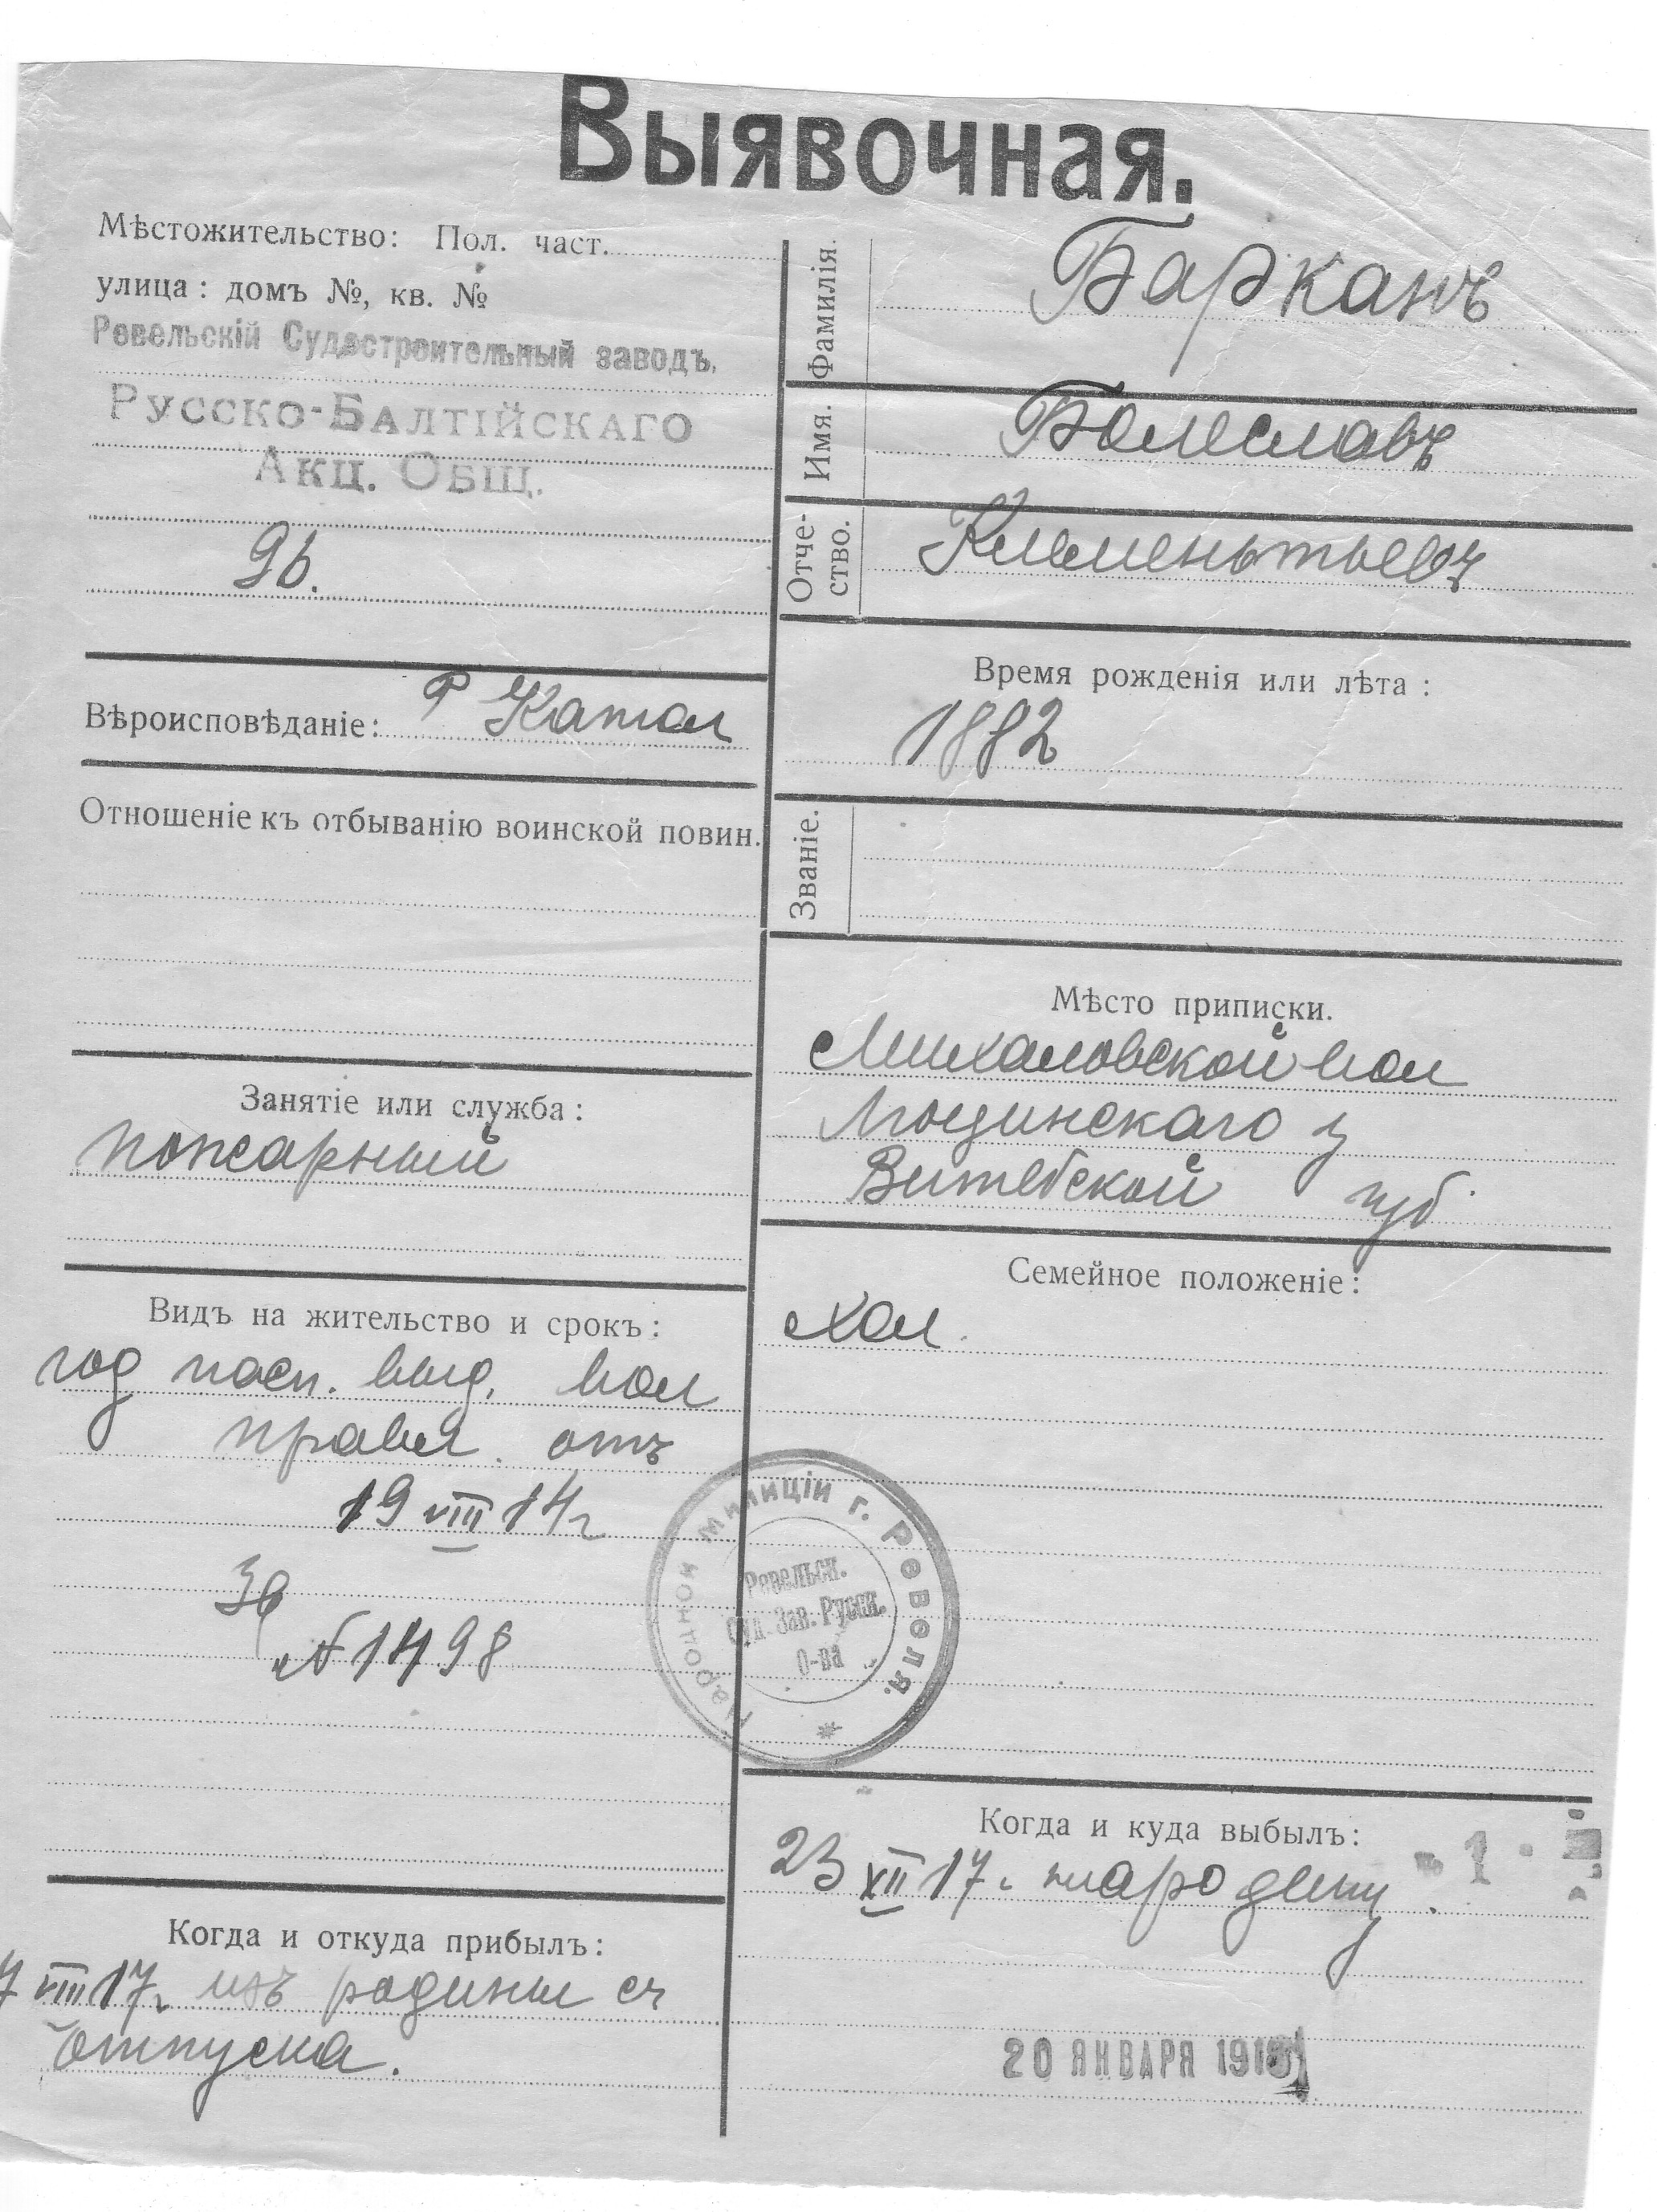 Выявочная.
Мѣстожительство: Пол. част.
улица: домъ №, кв. №
Ревельскій Судостроительный заводъ,
Русско-Балтійскаго
Акц. Общ.
96.
Вѣроисповѣданіе: Р Катол
Отношеніе къ отбыванію воинской повин.
Занятіе или служба:
пожарный
Видъ на жительство и срокъ:
год пасп. выд. вол
правл. отъ
19 VIII 14 г
за
№ 1498
Когда и откуда прибылъ:
7 VIII 17 г. изъ родины съ
отпуска.
Фамилія. Барканъ
Имя. Болеславъ
Отче-
ство. Клементьевъ
Время рожденія или лѣта:
1882
Званіе.
Мѣсто приписки.
Михаловской вол
Люцинскаго у
Витебской губ
Семейное положеніе:
Хол.
Народной милиціи г. Ревеля.
Ревельск.
Суд. Зав. Русск.
О-ва
Когда и куда выбылъ:
23 XII 17 г. на родину
20 ЯНВАРЯ 1918